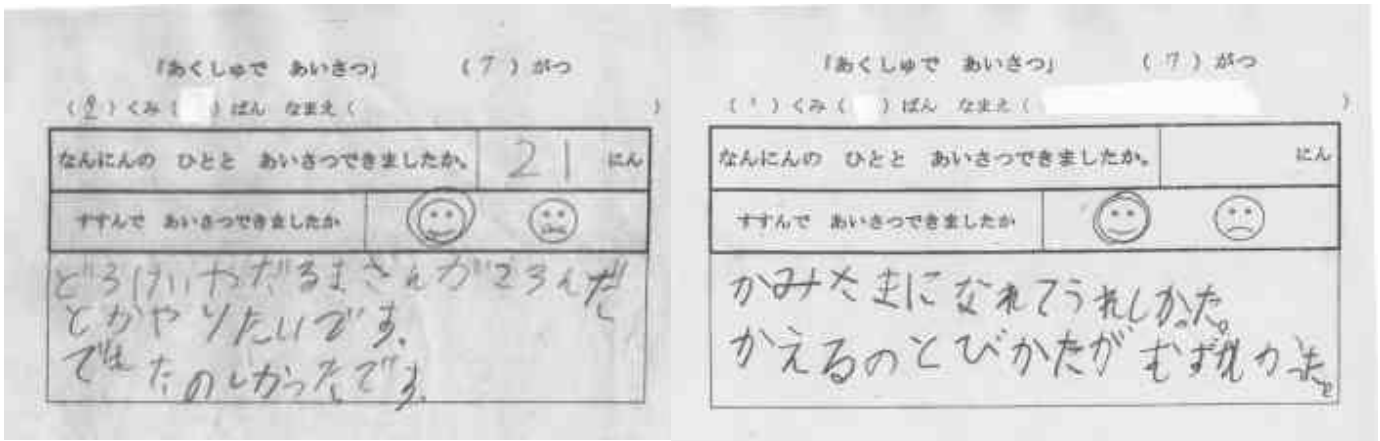 「あくしゅで あいさつ」 (7)がつ
(2)くみ( )ばん なまえ( )
なんにんの ひとと あいさつできましたか。 21 にん
すすんで あいさつできましたか
どろけいやだるまさんがころんだ
とかやりたいです。
でもたのしかったです。
「あくしゅで あいさつ」 (7)がつ
(1)くみ( )ばん なまえ( )
なんにんの ひとと あいさつできましたか。 にん
すすんで あいさつできましたか
かみさまになれてうれしかった。
かえるのとびかたが